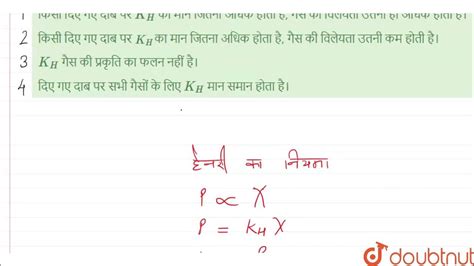 1 किसी दिए गए दाब पर K_H का मान जितना अधिक होता है, गैस की विलेयता उतनी ही अधिक होती है।
2 किसी दिए गए दाब पर K_H का मान जितना अधिक होता है, गैस की विलेयता उतनी कम होती है।
3 K_H गैस की प्रकृति का फलन नहीं है।
4 दिए गए दाब पर सभी गैसों के लिए K_H मान समान होता है।
हेनरी का नियम
P ∝ X
P = K_H X
doubtnut